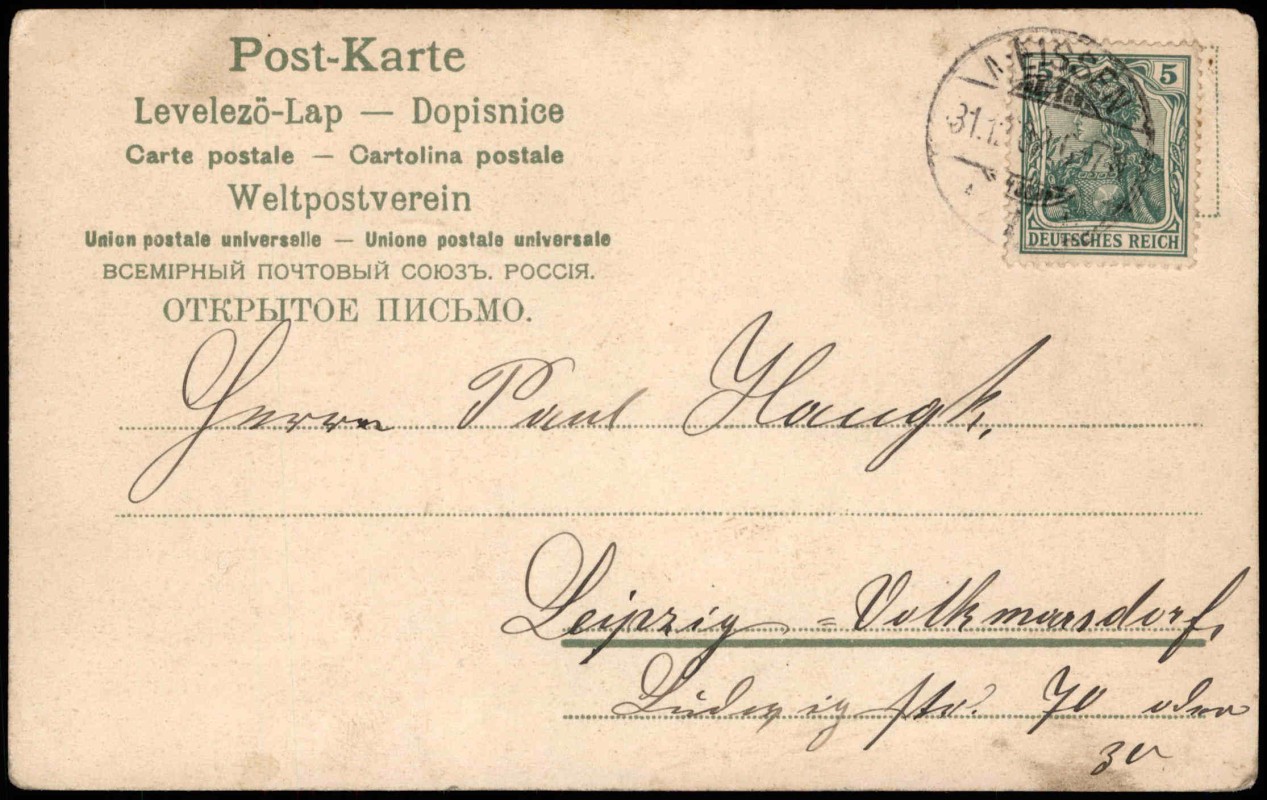 Post-Karte
Levelező-Lap — Dopisnice
Carte postale — Cartolina postale
Weltpostverein
Union postale universelle — Unione postale universale
ВСЕМІРНЫЙ ПОЧТОВЫЙ СОЮЗЪ. РОССІЯ.
ОТКРЫТОЕ ПИСЬМО.
MEISSEN
31.12
5 5
DEUTSCHES REICH
Herrn Paul Haugk,
Leipzig = Volkmarsdorf,
Ludwig str. 70 oder